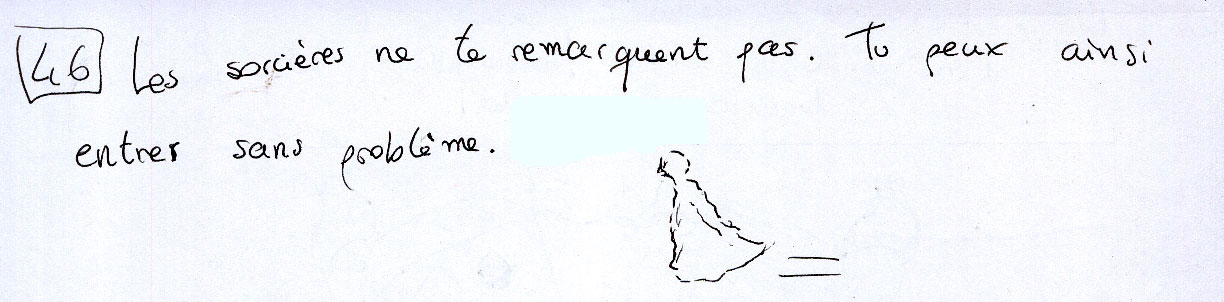 46 Les sorcières ne te remarquent pas. Tu peux ainsi
entrer sans problème.